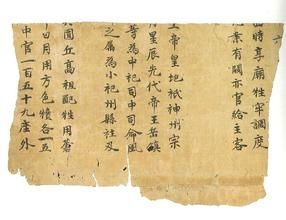 時享廟牲牢調度
業有闕亦官給主客
上帝皇地祇神州宗
星辰先代帝王岳鎮
等為中祀司中司命風
之屬為小祀州縣社及
圓丘高祖配牲用蒼
日月用方色犢各一五
中官一百五十九座外